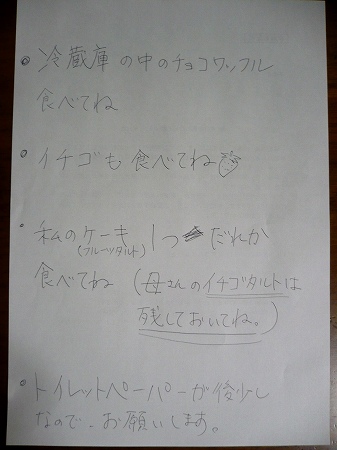 ◎ 冷蔵庫の中のチョコワッフル
食べてね
◎ イチゴも食べてね
・ 私のケーキ1つ だれか
(フルーツタルト)
食べてね (母さんのイチゴタルトは
残しておいてね。)
・ トイレットペーパーが後少し
なので、お願いします。